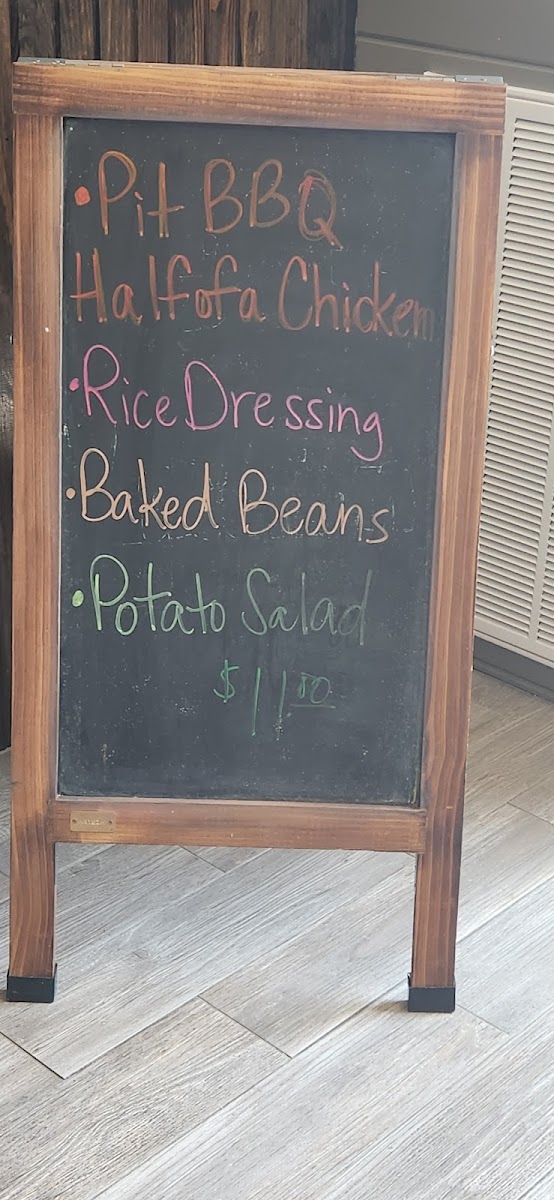 • Pit BBQ
Half of a Chicken
• Rice Dressing
• Baked Beans
• Potato Salad
$11.50